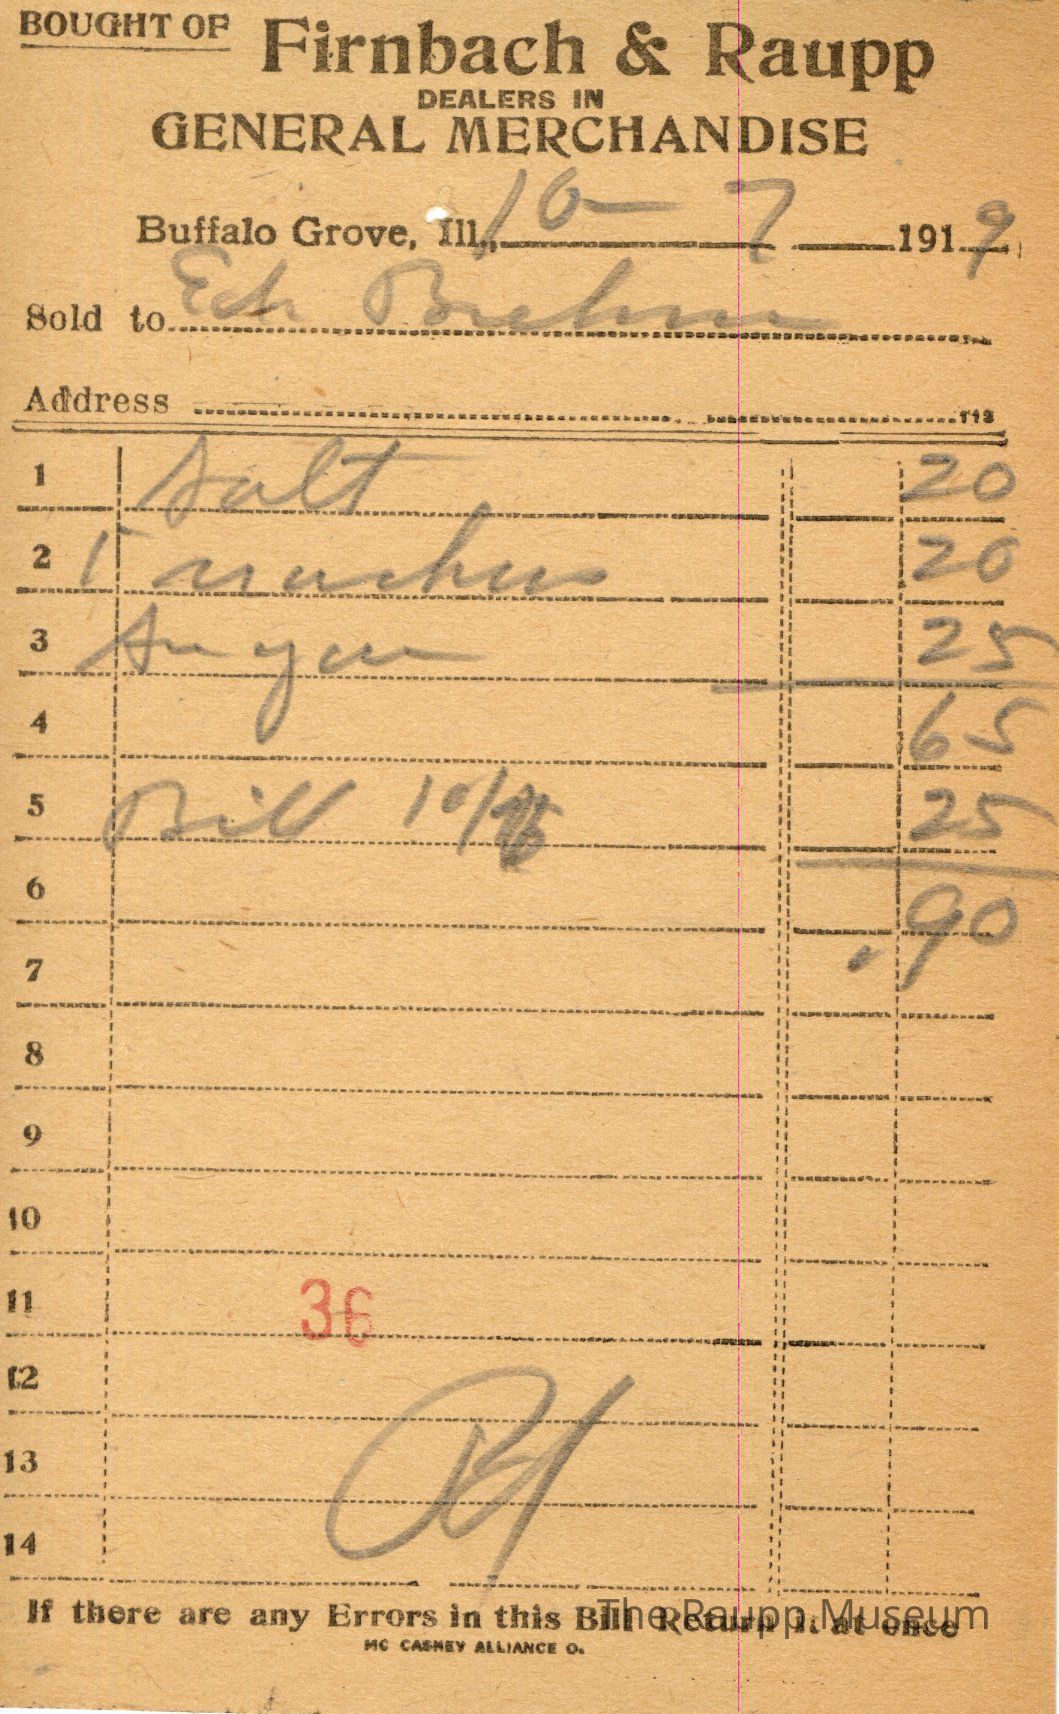 BOUGHT OF Firnbach & Raupp
DEALERS IN
GENERAL MERCHANDISE
Buffalo Grove, Ill., 10-7 1919
Sold to Ed Brehm
Address 113
1 Salt 20
2 20
3 25
4 65
5 Bill 10/ 25
6 .90
7
8
9
10
11 36
12
13
14
If there are any Errors in this Bill Return it at once
The Raupp Museum
MC CASKEY ALLIANCE O.